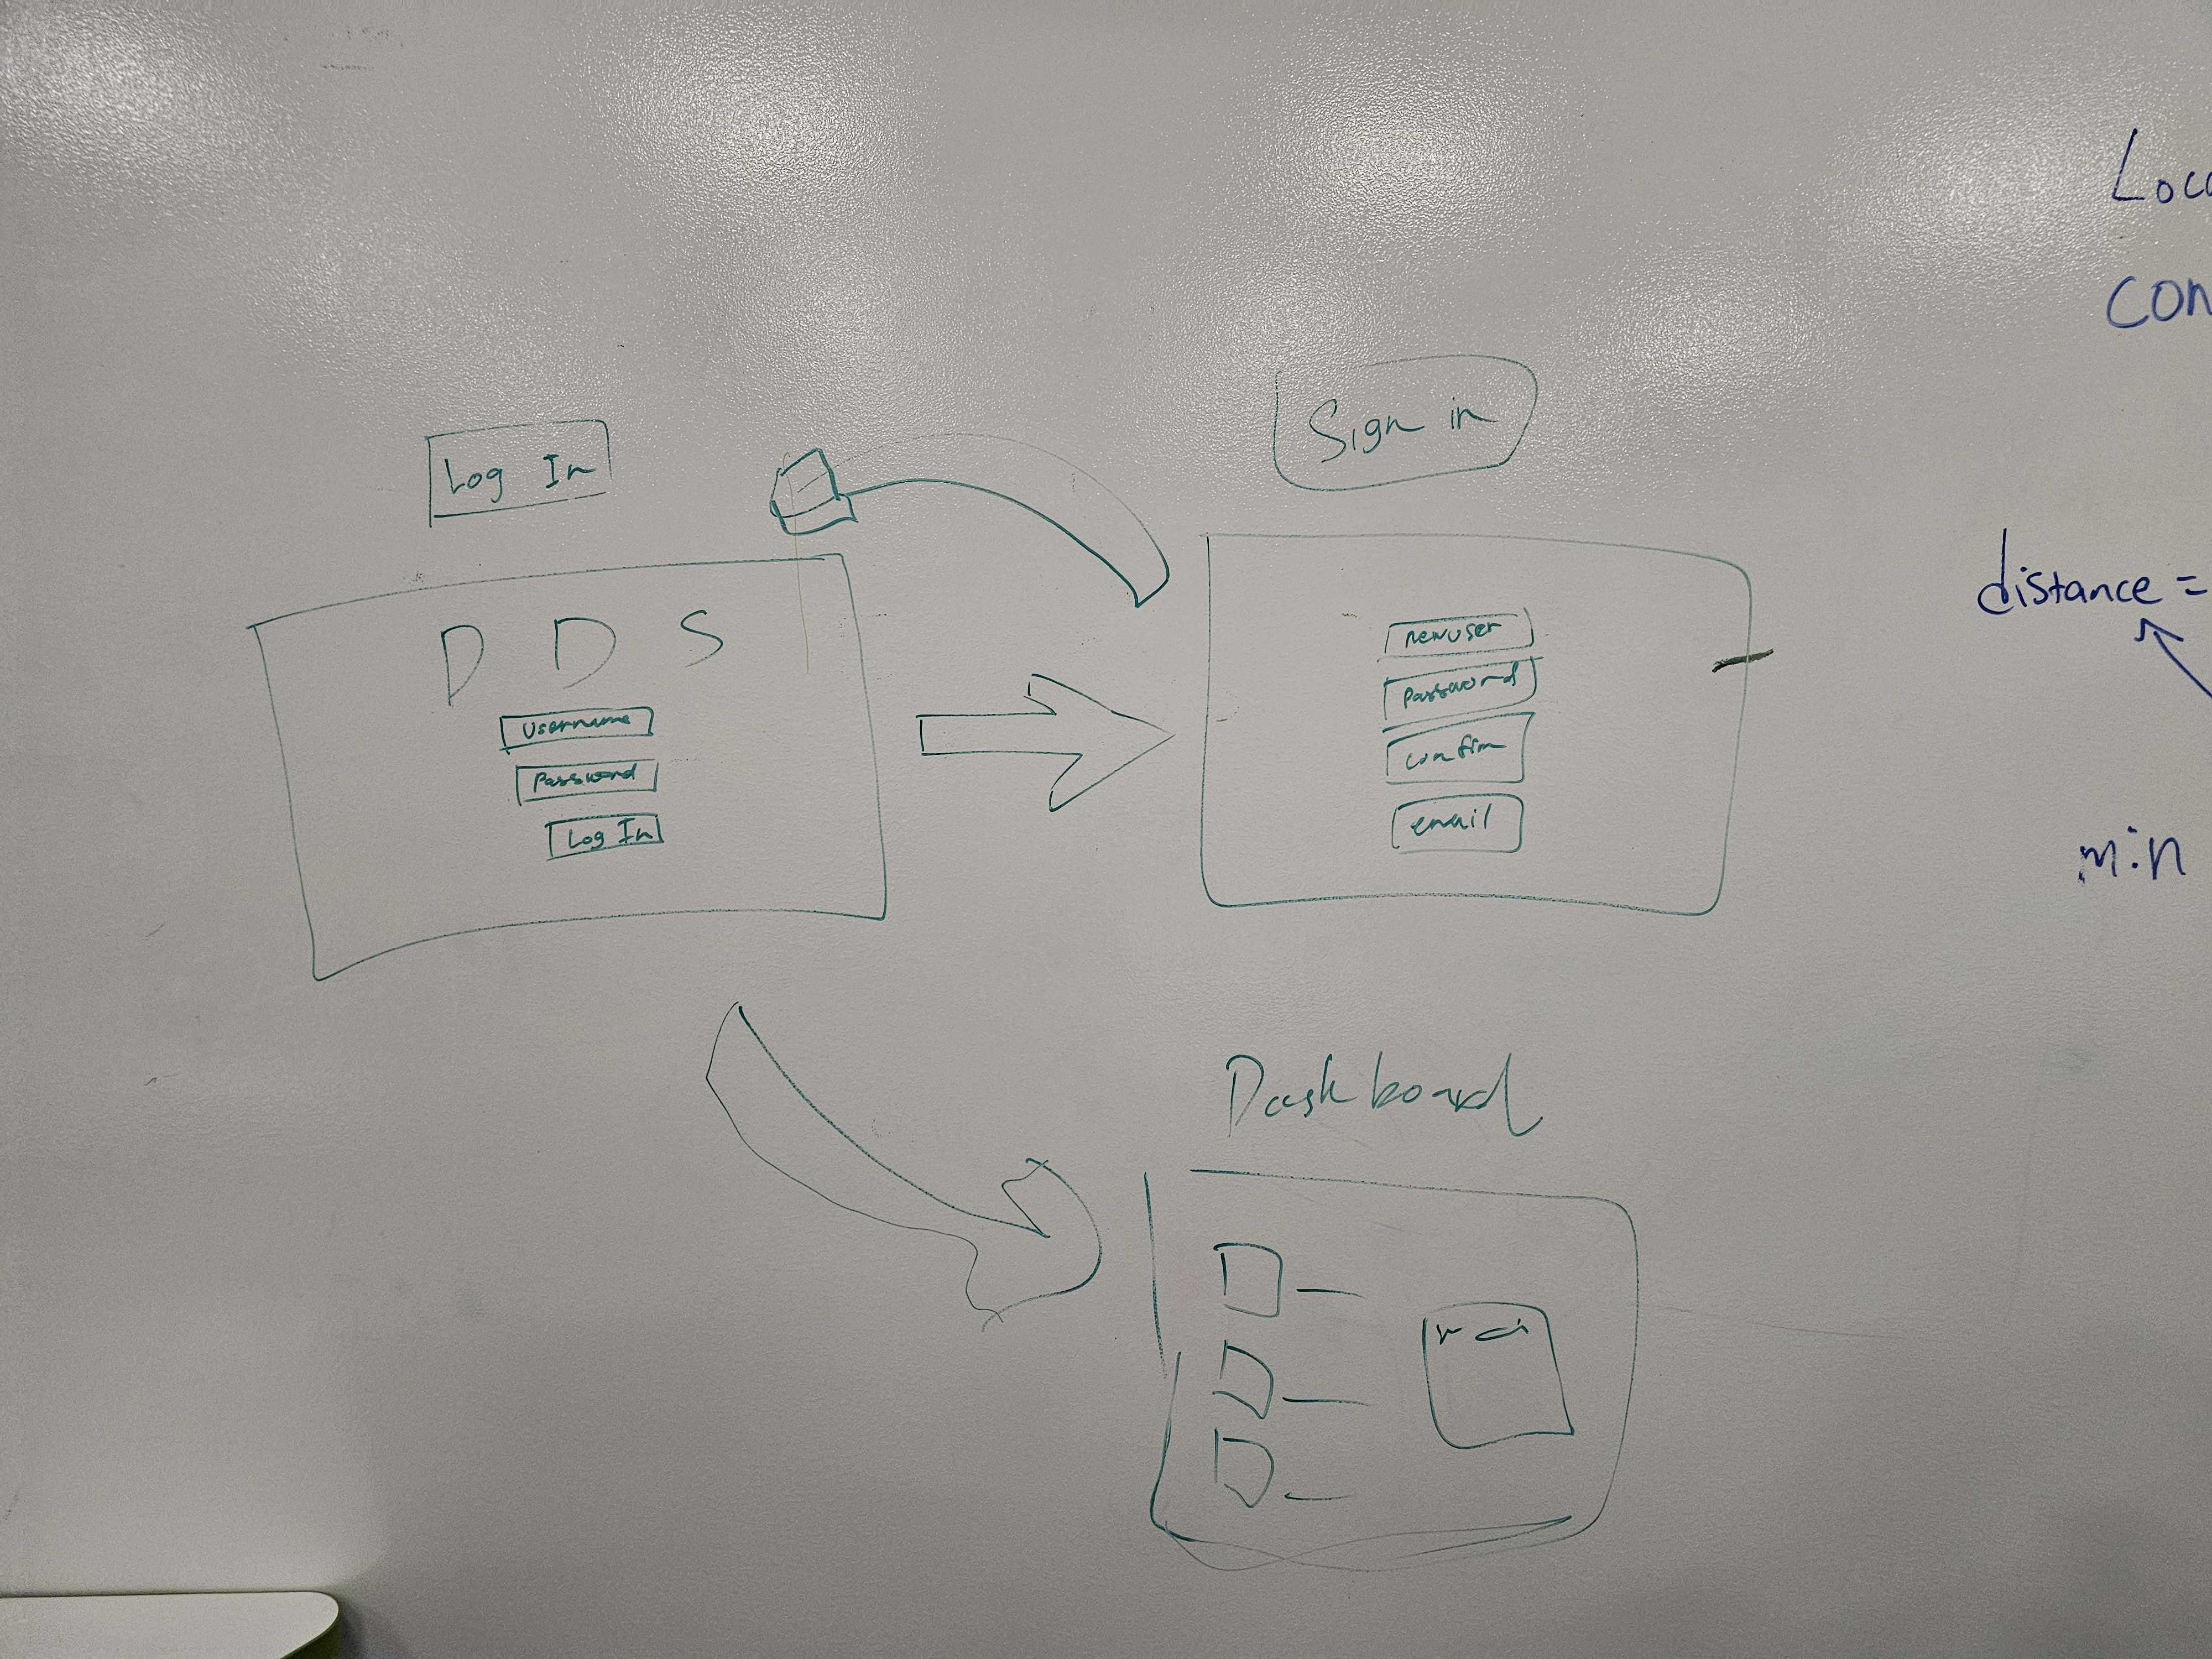 Log In
D D S
Username
Password
Log In
Sign in
newuser
Password
confirm
email
Dashboard
Loc
con
distance =
min